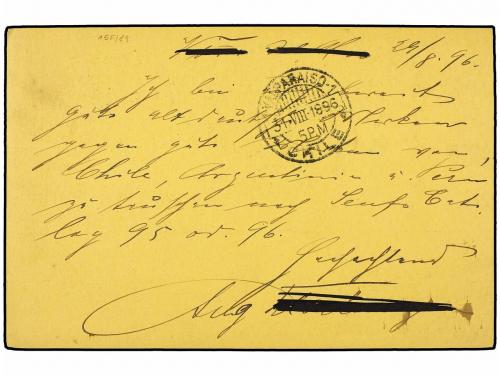 155/89
29/8. 96.
Ich bin bereit
gute altdeutsche Marken
gegen gute von
Chile, Argentinien u. Peru
zu tauschen nach Senfs Cat.
log 95 od. 96.
Hochachtend
Aug
VALPARAISO-1
31-VIII-1896
5 P.M.
CHILE